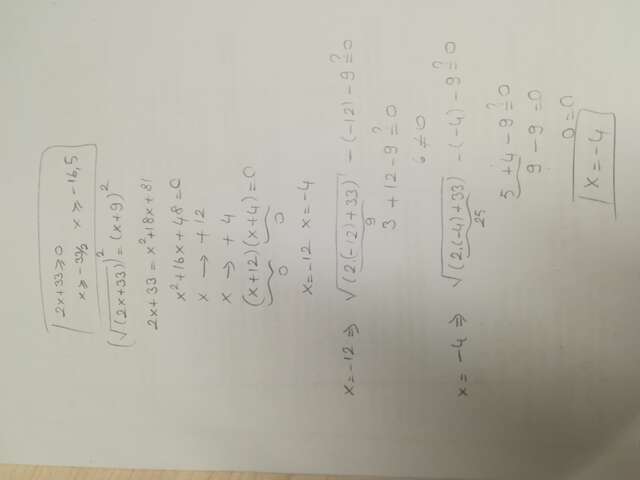 2x+33≥0
x≥-33/2 x≥-16,5
(√(2x+33))² = (x+9)²
2x+33 = x²+18x+81
x²+16x+48=0
x → +12
x → +4
(x+12)(x+4)=0
0 0
x=-12 x=-4
x=-12 ⇒ √(2.(-12)+33) - (-12) - 9 ?= 0
9
3 + 12 - 9 ?= 0
6 ≠ 0
x = -4 ⇒ √(2.(-4)+33) - (-4) - 9 ?= 0
25
5 + 4 - 9 ?= 0
9 - 9 = 0
0 = 0
x = -4